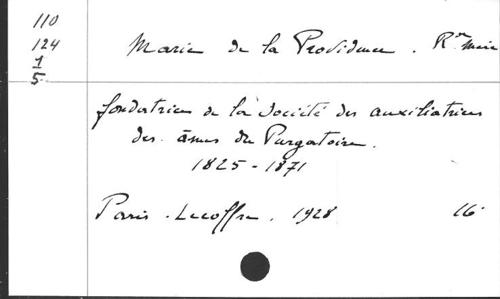 110
124
1
5
Marie de la Providence. Rde mère
fondatrice de la Société des auxiliatrices
des âmes du Purgatoire.
1825-1871
Paris. Lecoffre. 1928 16